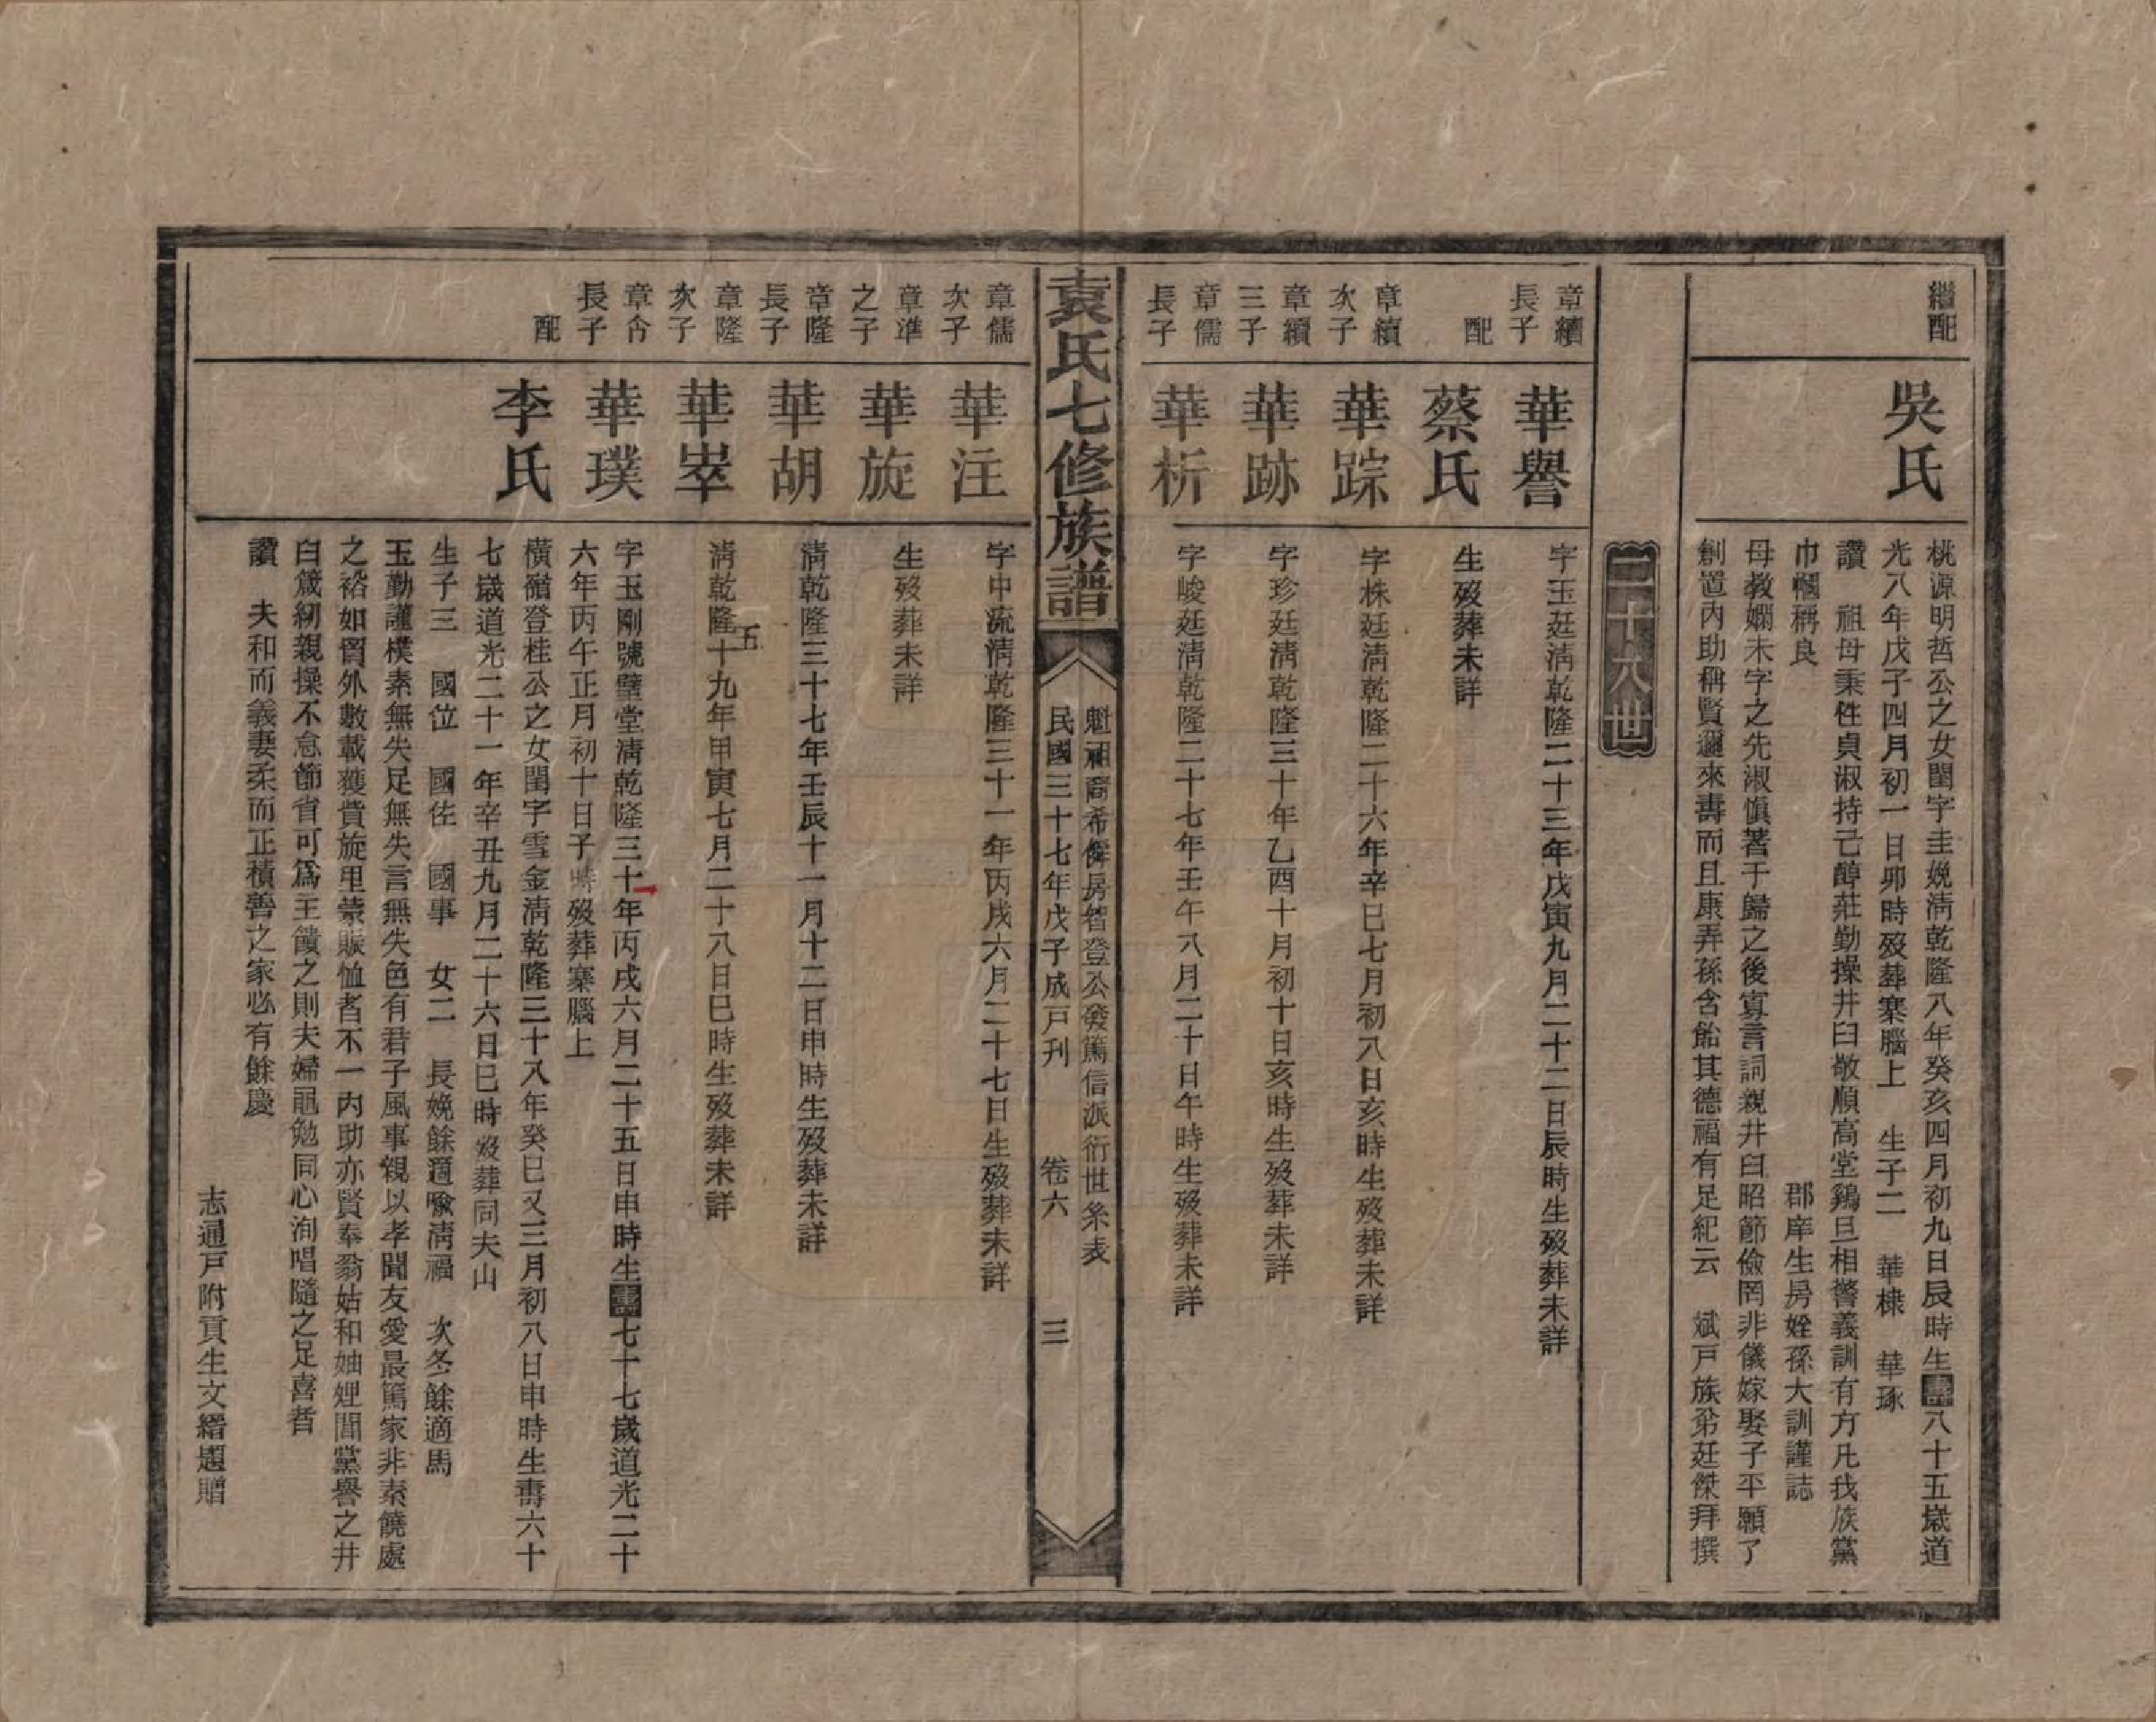 繼配
吳氏
桃源明哲公之女閨字圭娩淸乾隆八年癸亥四月初九日辰時生壽八十五歲道
光八年戊子四月初一日卯時歿葬寨腦上　生子二　華棣　華琢
讚　祖母秉性貞淑持己醇莊勤操井臼敬順高堂鷄旦相警義訓有方凡我族黨
巾幗稱良　郡庠生房姪孫大訓謹誌
母教嫻未字之先淑愼著于歸之後寡言詞親井臼昭節儉罔非儀嫁娶子平願了
創置內助稱賢邇來壽而且康弄孫含飴其德福有足紀云　斌戸族弟廷傑拜撰
二十八世
章續
長子
華譽
字玉廷淸乾隆二十三年戊寅九月二十二日辰時生歿葬未詳
配
蔡氏
生歿葬未詳
章續
次子
華踪
字株廷淸乾隆二十六年辛巳七月初八日亥時生歿葬未詳
章續
三子
華跡
字珍廷淸乾隆三十年乙酉十月初十日亥時生歿葬未詳
章儒
長子
華析
字峻廷淸乾隆二十七年壬午八月二十日午時生歿葬未詳
袁氏七修族譜
魁祖裔希儕房智登公發篤信派衍世系表
民國三十七年戊子成戸刊　卷六　三
章儒
次子
華注
字中流淸乾隆三十一年丙戌六月二十七日生歿葬未詳
章準
之子
華旋
生歿葬未詳
章隆
長子
華胡
淸乾隆三十七年壬辰十一月十二日申時生歿葬未詳
章隆
次子
華崒
淸乾隆五十九年甲寅七月二十八日巳時生歿葬未詳
章㑹
長子
華璞
字玉剛號璧堂淸乾隆三十一年丙戌六月二十五日申時生壽七十七歲道光二十
六年丙午正月初十日子時歿葬寨腦上
配
李氏
橫嶺登桂公之女閨字雪金淸乾隆三十八年癸巳又三月初八日申時生壽六十
七歲道光二十一年辛丑九月二十六日巳時歿葬同夫山
生子三　國位　國佐　國事　女二　長娩餘適喩淸福　次冬餘適馬
玉勤謹樸素無失足無失言無失色有君子風事親以孝聞友愛最篤家非素饒處
之裕如貿外數載獲貲旋里蒙賑恤者不一內助亦賢奉翁姑和妯娌閭黨譽之井
臼箴紉親操不怠節省可爲王饋之則夫婦黽勉同心洵唱隨之足喜者
讚　夫和而義妻柔而正積善之家必有餘慶
志通戸附貢生文縉題贈